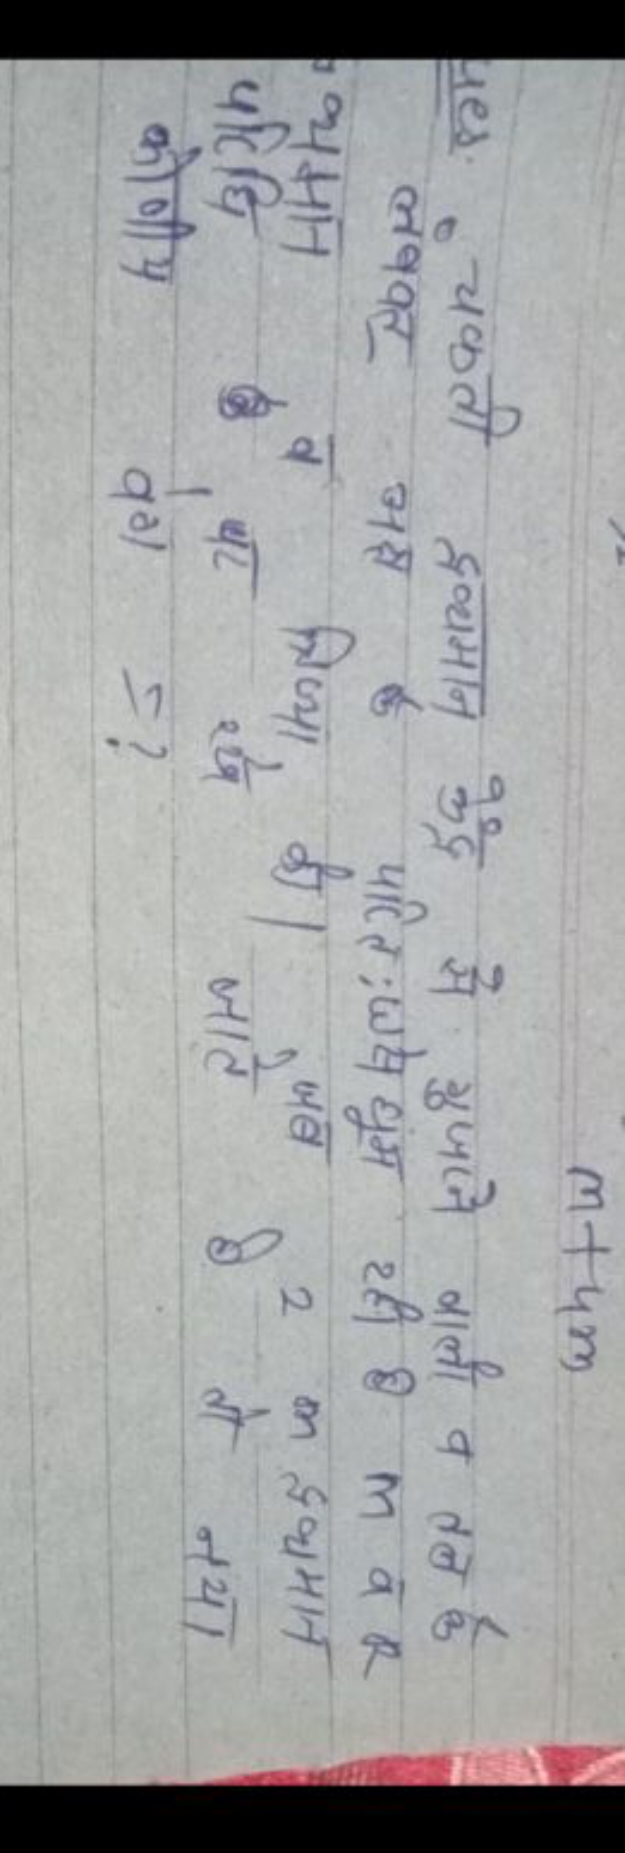 m+4m
Ques. :- चकती द्रव्यमान केंद्र से गुजरने वाली व तल के
लम्बवत अक्ष के परित: घूम रही है m व R
द्रव्यमान व त्रिज्या की। अब 2 m द्रव्यमान
परिधि पर रखे जाते है तो नया
कोणीय वेग = ?